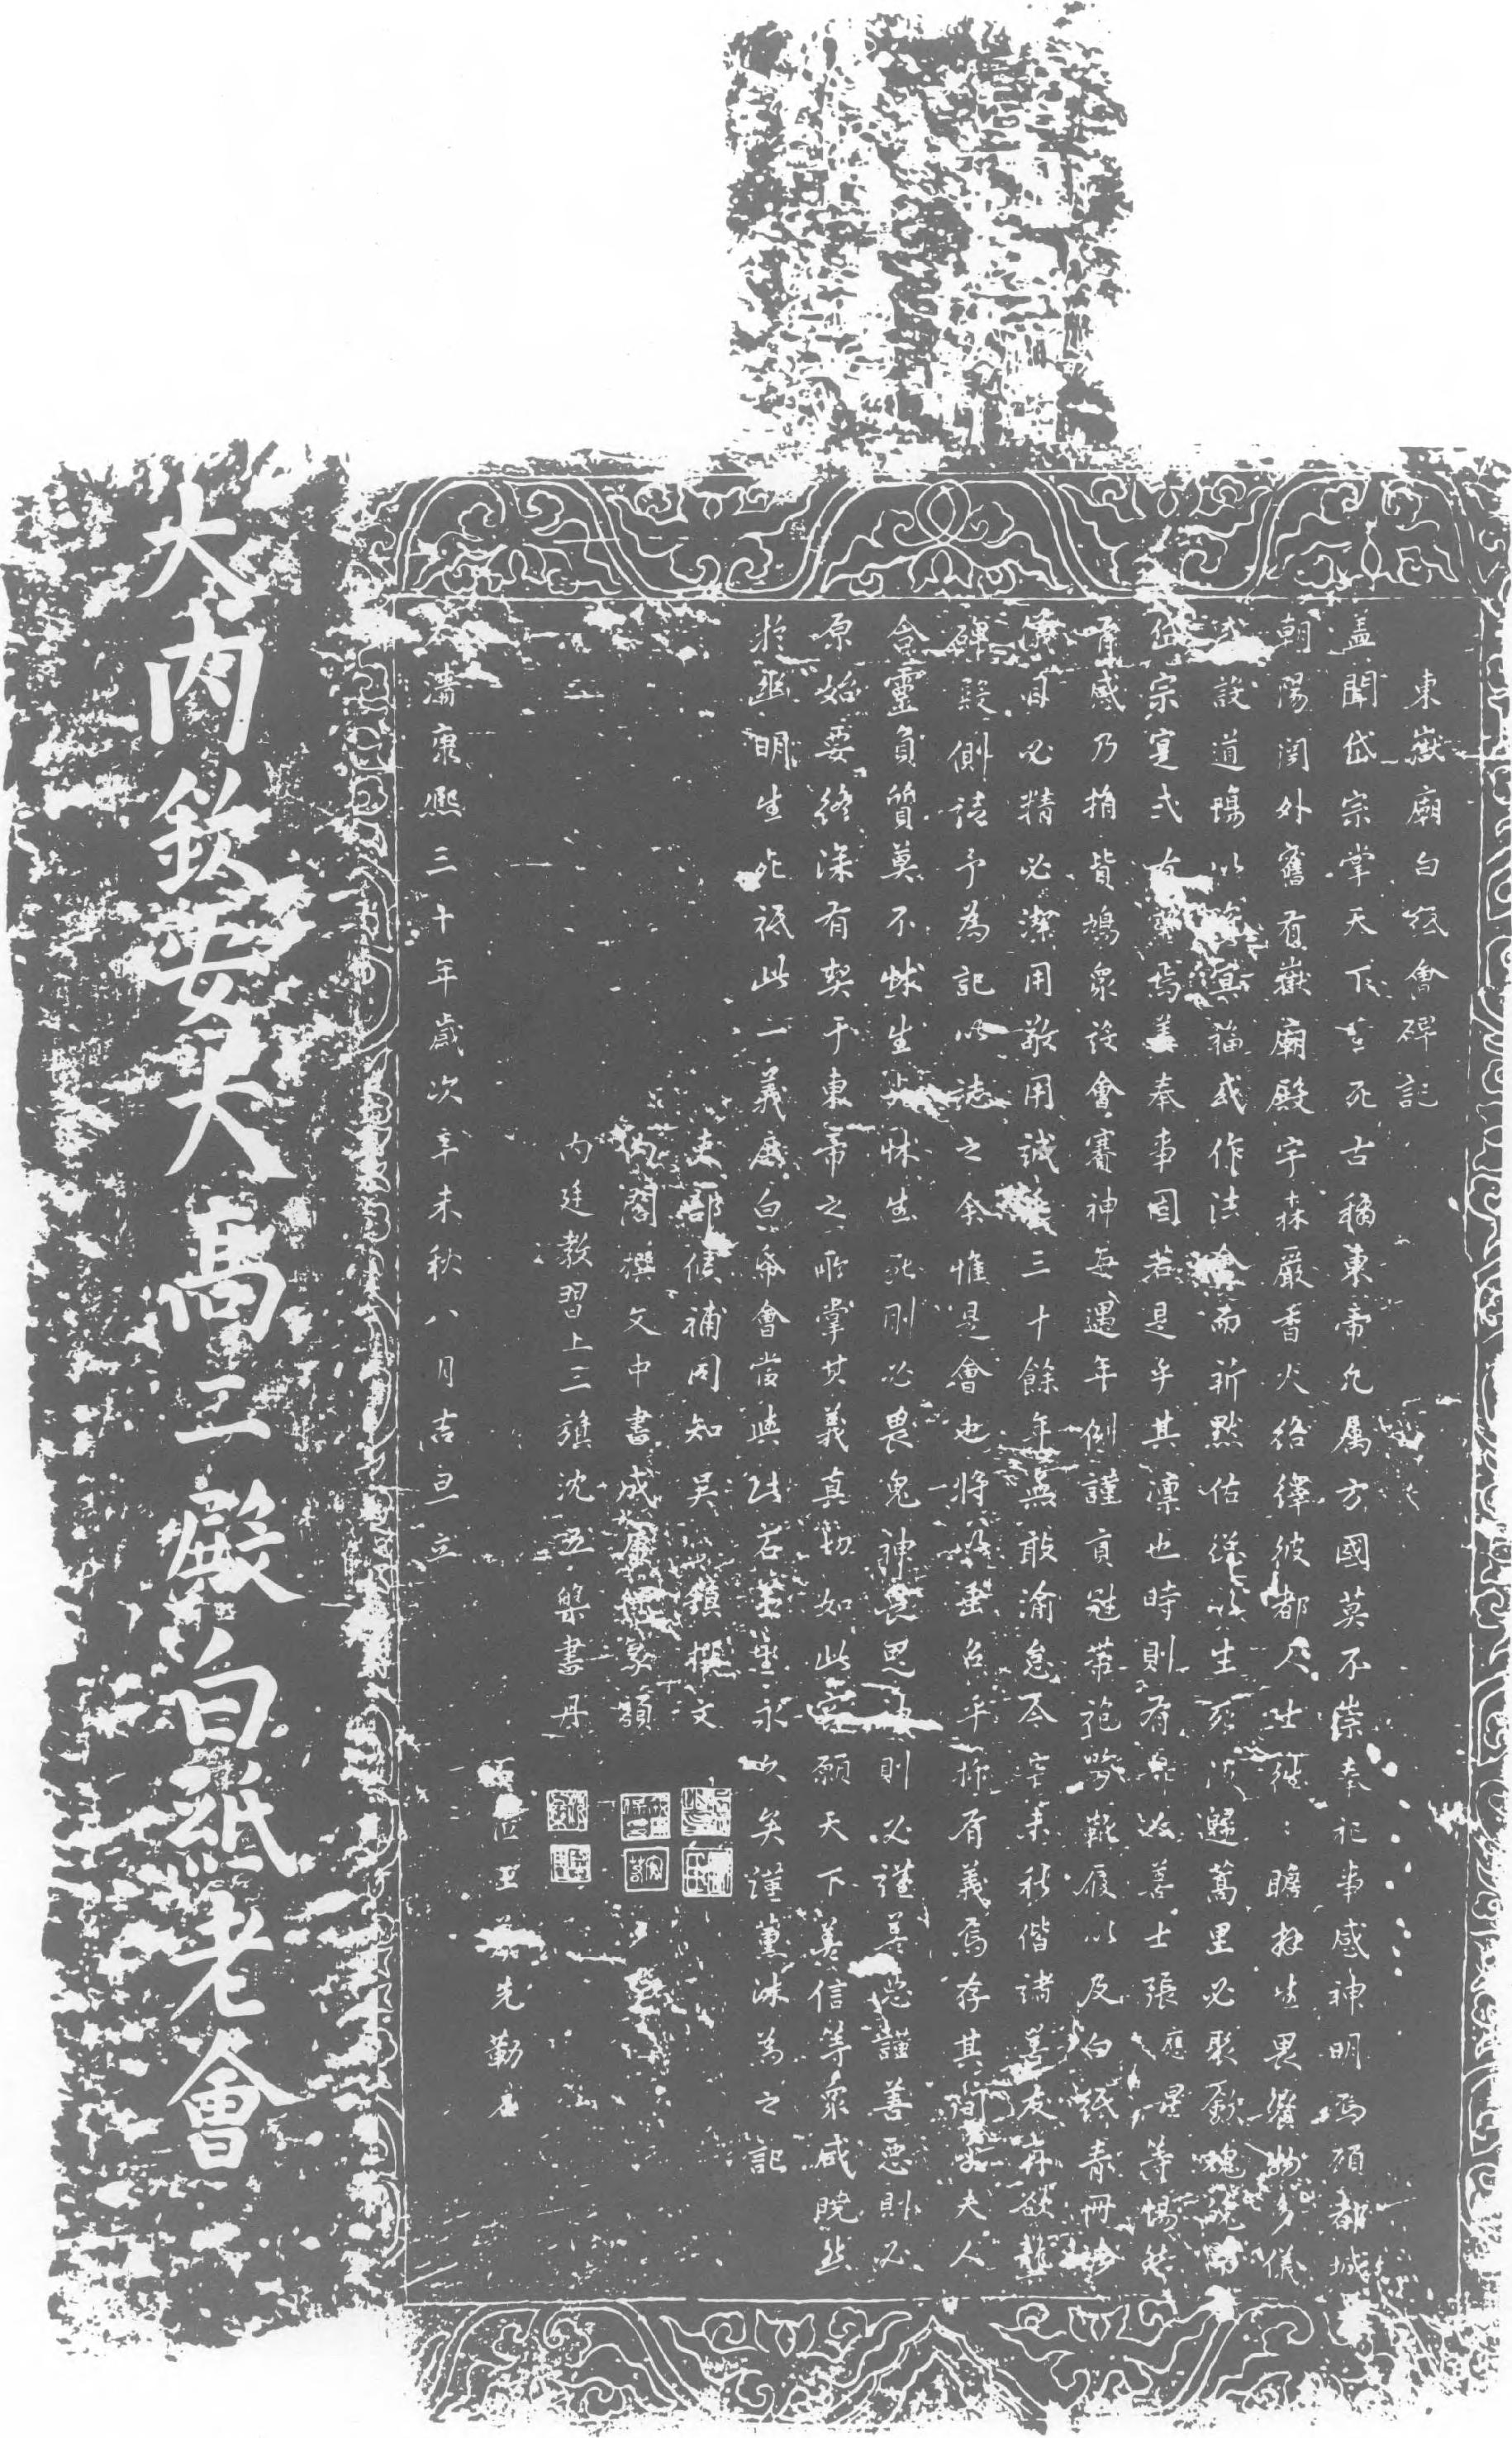 東嶽廟白紙會碑記
盖聞岱宗掌天下生死古稱東帝凡属方國莫不崇奉祀事感神明焉頋都城
朝陽関外舊有嶽廟殿宇森嚴香火絡繹彼都人士徃瞻拜生畏餙物多儀
設道塲以資冥福或作法會而祈默佑從以生死後歸蒿里必聚歛魂魄而
岱宗寔式有憑焉羙奉事固若是乎其凛也時則有善士張應星等惕然
有感乃捐貲鳩衆設會賽神每遇年例謹貢冠帶袍笏靴履以及白紙青冊
日必精必潔用敬用誠三十餘年無敢渝怠今辛未秋偕諸善友再欲龔
碑殿側請予為記以誌之余惟是會也將以垂名乎抑有義焉存其間夫人
含靈負質莫不怵生怵生死則必畏鬼神畏思神則必謹善惡謹善惡則必
原始要終深有契于東帝之所掌其義真切如此寔願天下善信等衆咸曉然
扵幽明生死祇此一義庶白帋會當與此石並垂永久矣謹薰沐為之記
吏部候補同知吳鎮撰文
内閣撰文中書成康篆額
内廷教習上三旗沈五槼書丹
王先勒石
清康熙三十年歲次辛未秋八月吉旦立
大内欽安大髙二殿白紙老會